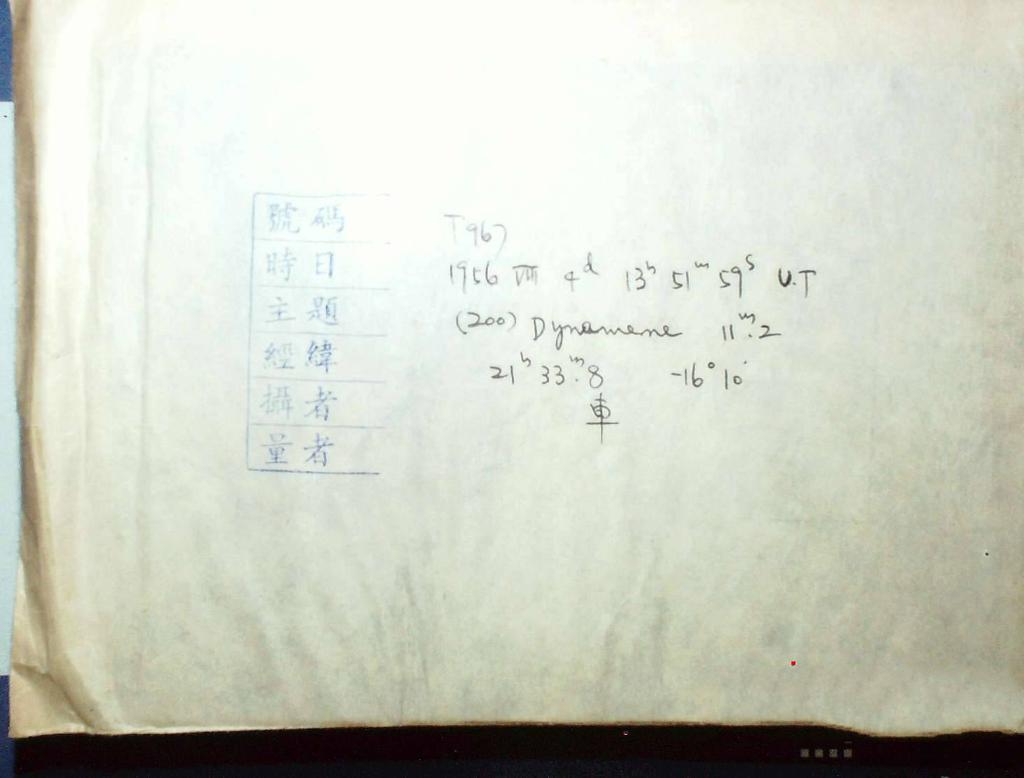 號碼 T967
時日 1956 VIII 4d 13h 51m 59s U.T
主題 (200) Dynamene 11m.2
經緯 21h 33m.8 -16° 10'
攝者 車
量者